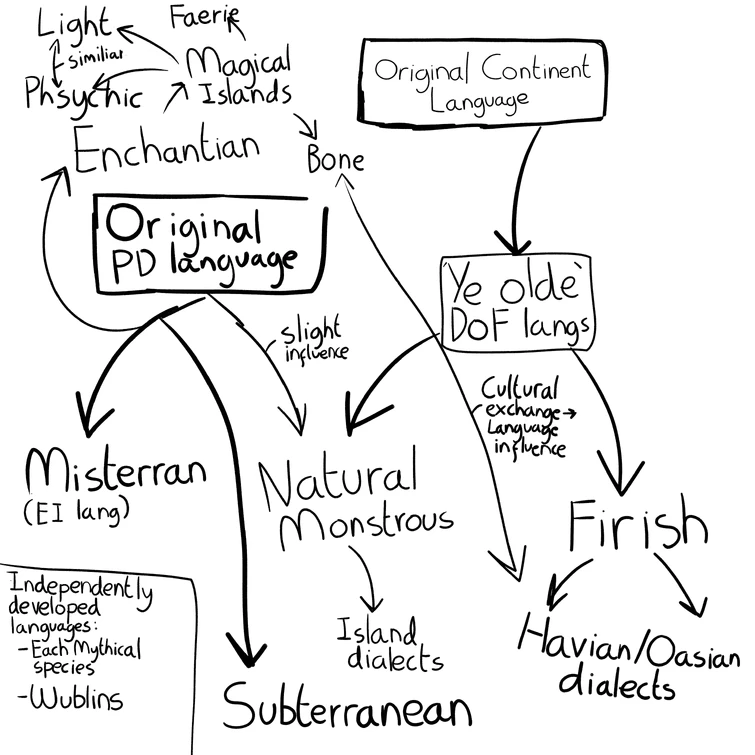 Light
similiar
Phsychic
Faerie
Magical
Islands
Enchantian
Bone
Original Continent
Language
Original
PD language
Ye olde`
DoF langs
slight
influence
Cultural
exchange→
Language
influence
Misterran
(EI lang)
Natural
Monstrous
Firish
Island
dialects
Havian/Oasian
dialects
Subterranean
Independently
developed
languages:
-Each Mythical
species
-Wublins